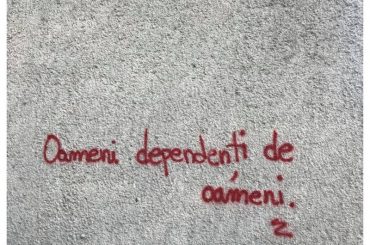 Oameni dependenți de
oameni.
z